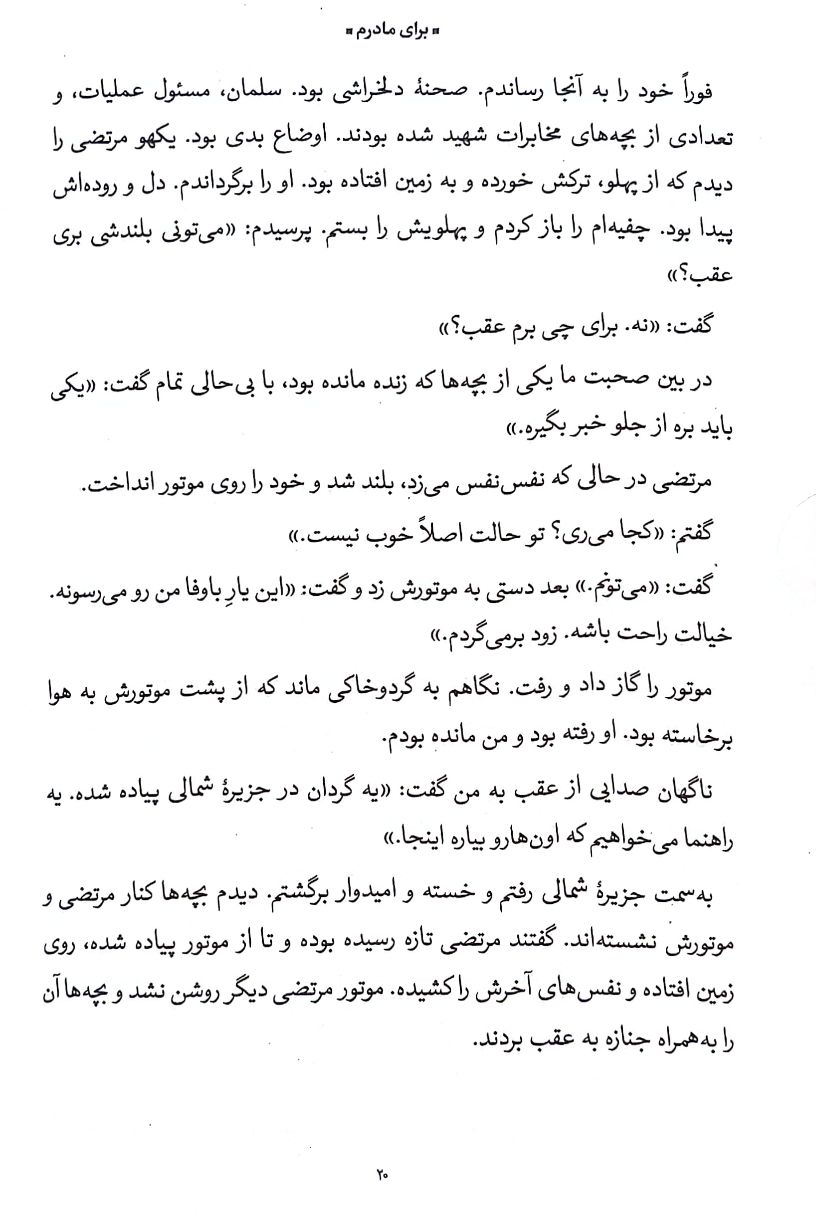 ▪ برای مادرم ▪
فوراً خود را به آنجا رساندم. صحنهٔ دلخراشی بود. سلمان، مسئول عملیات، و
تعدادی از بچه‌های مخابرات شهید شده بودند. اوضاع بدی بود. یکهو مرتضی را
دیدم که از پهلو، ترکش خورده و به زمین افتاده بود. او را برگرداندم. دل و روده‌اش
پیدا بود. چفیه‌ام را باز کردم و پهلویش را بستم. پرسیدم: «می‌تونی بلندشی بری
عقب؟»
گفت: «نه. برای چی برم عقب؟»
در بین صحبت ما یکی از بچه‌ها که زنده مانده بود، با بی‌حالی تمام گفت: «یکی
باید بره از جلو خبر بگیره.»
مرتضی در حالی که نفس‌نفس می‌زد، بلند شد و خود را روی موتور انداخت.
گفتم: «کجا می‌ری؟ تو حالت اصلاً خوب نیست.»
گفت: «می‌تونم.» بعد دستی به موتورش زد و گفت: «این یارِ باوفا من رو می‌رسونه.
خیالت راحت باشه. زود برمی‌گردم.»
موتور را گاز داد و رفت. نگاهم به گردوخاکی ماند که از پشت موتورش به هوا
برخاسته بود. او رفته بود و من مانده بودم.
ناگهان صدایی از عقب به من گفت: «یه گردان در جزیرهٔ شمالی پیاده شده. یه
راهنما می‌خواهیم که اون‌هارو بیاره اینجا.»
به‌سمت جزیرهٔ شمالی رفتم و خسته و امیدوار برگشتم. دیدم بچه‌ها کنار مرتضی و
موتورش نشسته‌اند. گفتند مرتضی تازه رسیده بوده و تا از موتور پیاده شده، روی
زمین افتاده و نفس‌های آخرش را کشیده. موتور مرتضی دیگر روشن نشد و بچه‌ها آن
را به‌همراه جنازه به عقب بردند.
۲۰